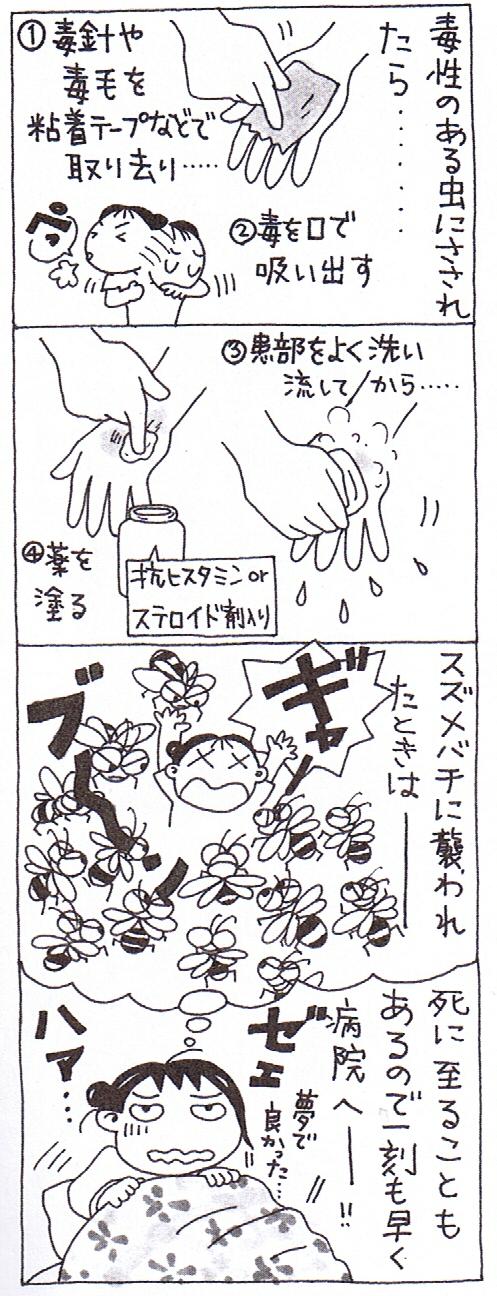 毒性のある虫にさされ
たら・・・・・・・
①毒針や
毒毛を
粘着テープなどで
取り去り……
②毒を口で
吸い出す
ペっ
③患部をよく洗い
流してから……
④薬を
塗る
抗ヒスタミンor
ステロイド剤入り
スズメバチに襲われ
たときは――
ギャー
ブ〜ン
死に至ることも
あるので一刻も早く
病院へ――!!
ゼェ
ハァ…
夢で
良かった…